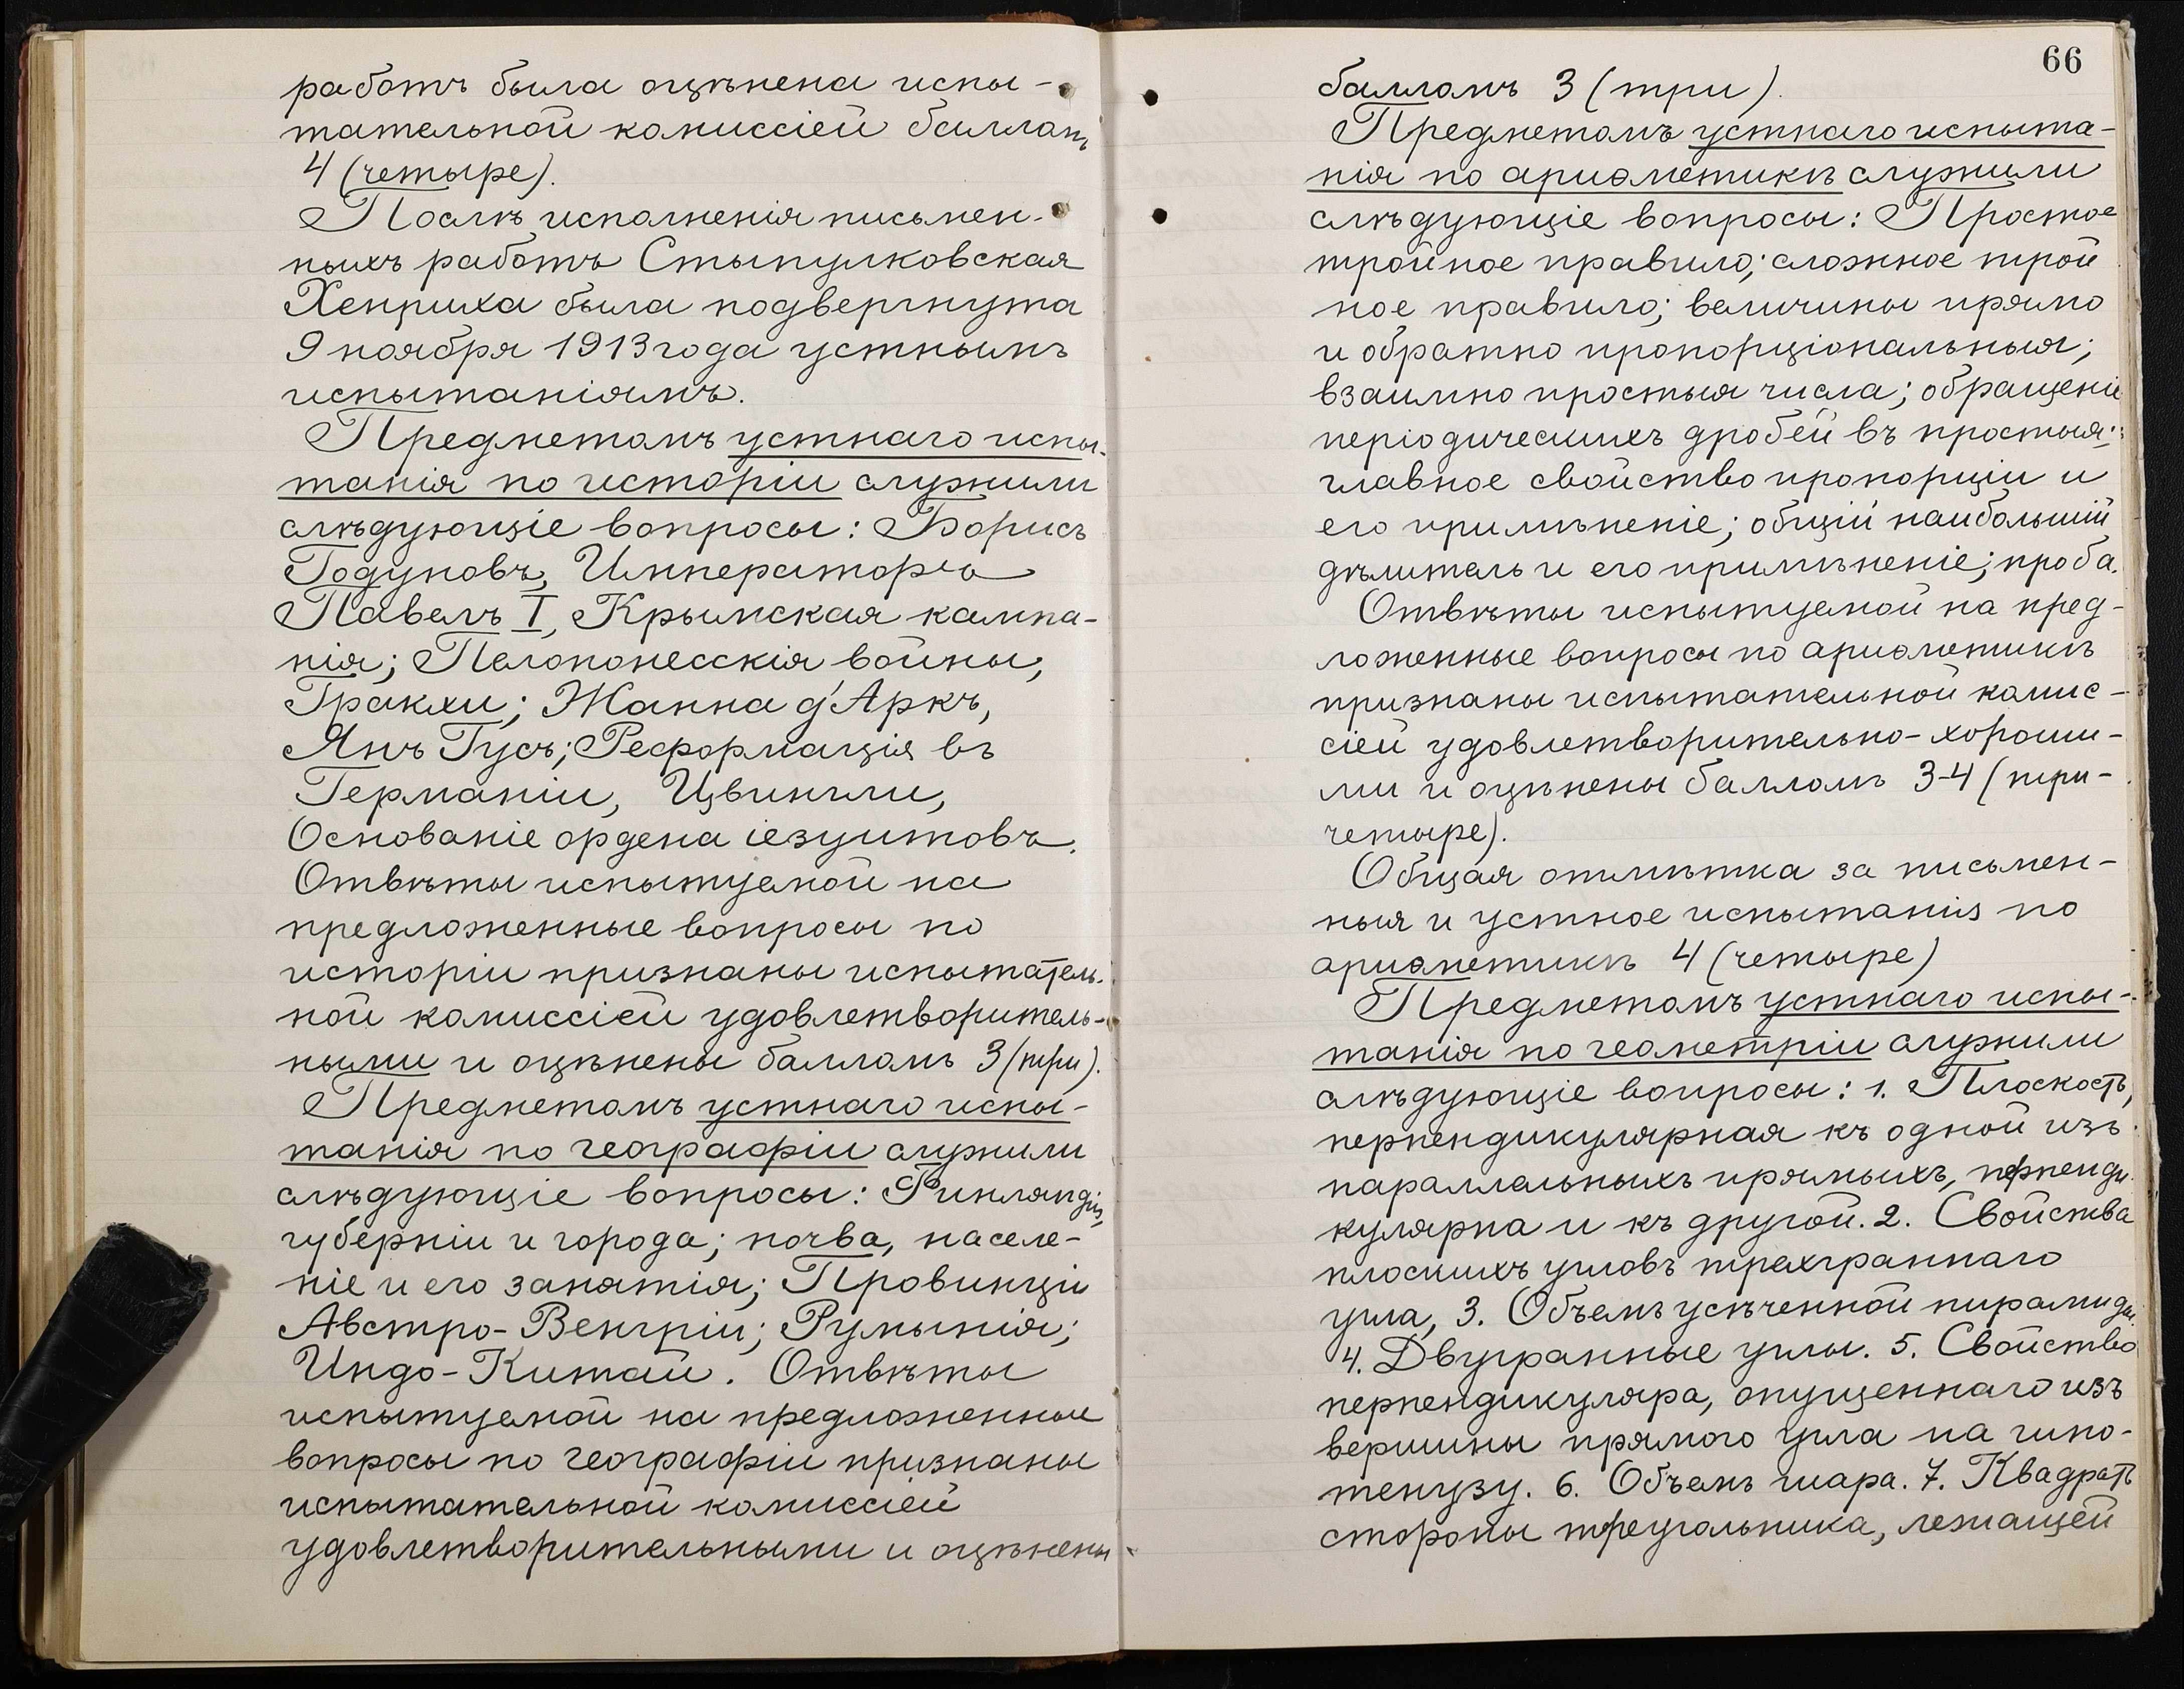 работъ была оцѣнена испы-
тательной комиссіей балломъ
4 (четыре).
Послѣ исполненія письмен-
ныхъ работъ Стыпулковская
Хенриха была подвергнута
9 ноября 1913 года устнымъ
испытаніямъ.
Предметомъ устнаго испы-
танія по исторіи служили
слѣдующіе вопросы: Борисъ
Годуновъ, Императоръ
Павелъ I, Крымская кампа-
нія; Пелопонесскія войны,
Гракхи; Жанна д'Аркъ,
Янъ Гусъ; Реформація въ
Германіи, Цвингли,
Основаніе ордена іезуитовъ.
Отвѣты испытуемой на
предложенные вопросы по
исторіи признаны испытатель-
ной комиссіей удовлетворитель-
ными и оцѣнены балломъ 3 (три).
Предметомъ устнаго испы-
танія по географіи служили
слѣдующіе вопросы: Финляндія,
губерніи и города; почва, населе-
ніе и его занятія; Провинціи
Австро-Венгріи; Румынія;
Индо-Китай. Отвѣты
испытуемой на предложенные
вопросы по географіи признаны
испытательной комиссіей
удовлетворительными и оцѣнены
66
балломъ 3 (три).
Предметомъ устнаго испыта-
нія по ариѳметикѣ служили
слѣдующіе вопросы: Простое
тройное правило; сложное трой
ное правило; величины прямо
и обратно пропорціональныя;
взаимно простыя числа; обращеніе
періодическихъ дробей въ простыя;
главное свойство пропорціи и
его примѣненіе; общій наибольшій
дѣлитель и его примѣненіе; проба.
Отвѣты испытуемой на пред-
ложенные вопросы по ариѳметикѣ
признаны испытательной комис-
сіей удовлетворительно-хороши-
ми и оцѣнены балломъ 3-4 (три-
четыре).
Общая отмѣтка за письмен-
ныя и устное испытанія по
ариѳметикѣ 4 (четыре)
Предметомъ устнаго испы-
танія по геометріи служили
слѣдующіе вопросы: 1. Плоскость,
перпендикулярная къ одной изъ
параллельныхъ прямыхъ, перпенди-
кулярна и къ другой. 2. Свойства
плоскихъ угловъ трехграннаго
угла, 3. Объемъ усѣченной пирамиды.
4. Двугранные углы. 5. Свойство
перпендикуляра, опущеннаго изъ
вершины прямого угла на гипо-
тенузу. 6. Объемъ шара. 7. Квадратъ
стороны треугольника, лежащей